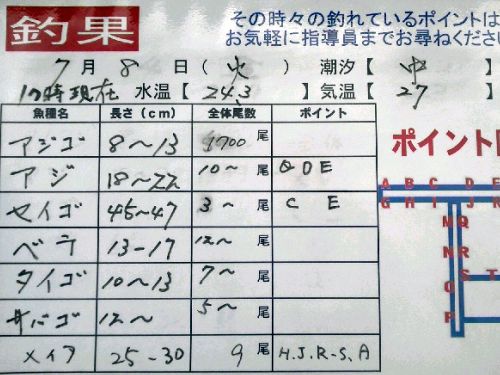 釣果
その時々の釣れているポイントは
お気軽に指導員までお尋ねくださ
7月 8日(火) 潮汐【 中
17時現在 水温【 24.3 】気温【 27
魚種名 長さ(cm) 全体尾数 ポイント
アジゴ 8〜13 700 尾
アジ 18〜22 10〜 尾 Q D E
セイゴ 45〜47 3〜 尾 C E
ベラ 13-17 12〜 尾
タイゴ 10〜13 7〜 尾
サバゴ 12〜 5〜 尾
メイタ 25-30 9 尾 H.J.R-S.A
ポイント
A B C D E
G H I J K
M Q
N R
O S T
P